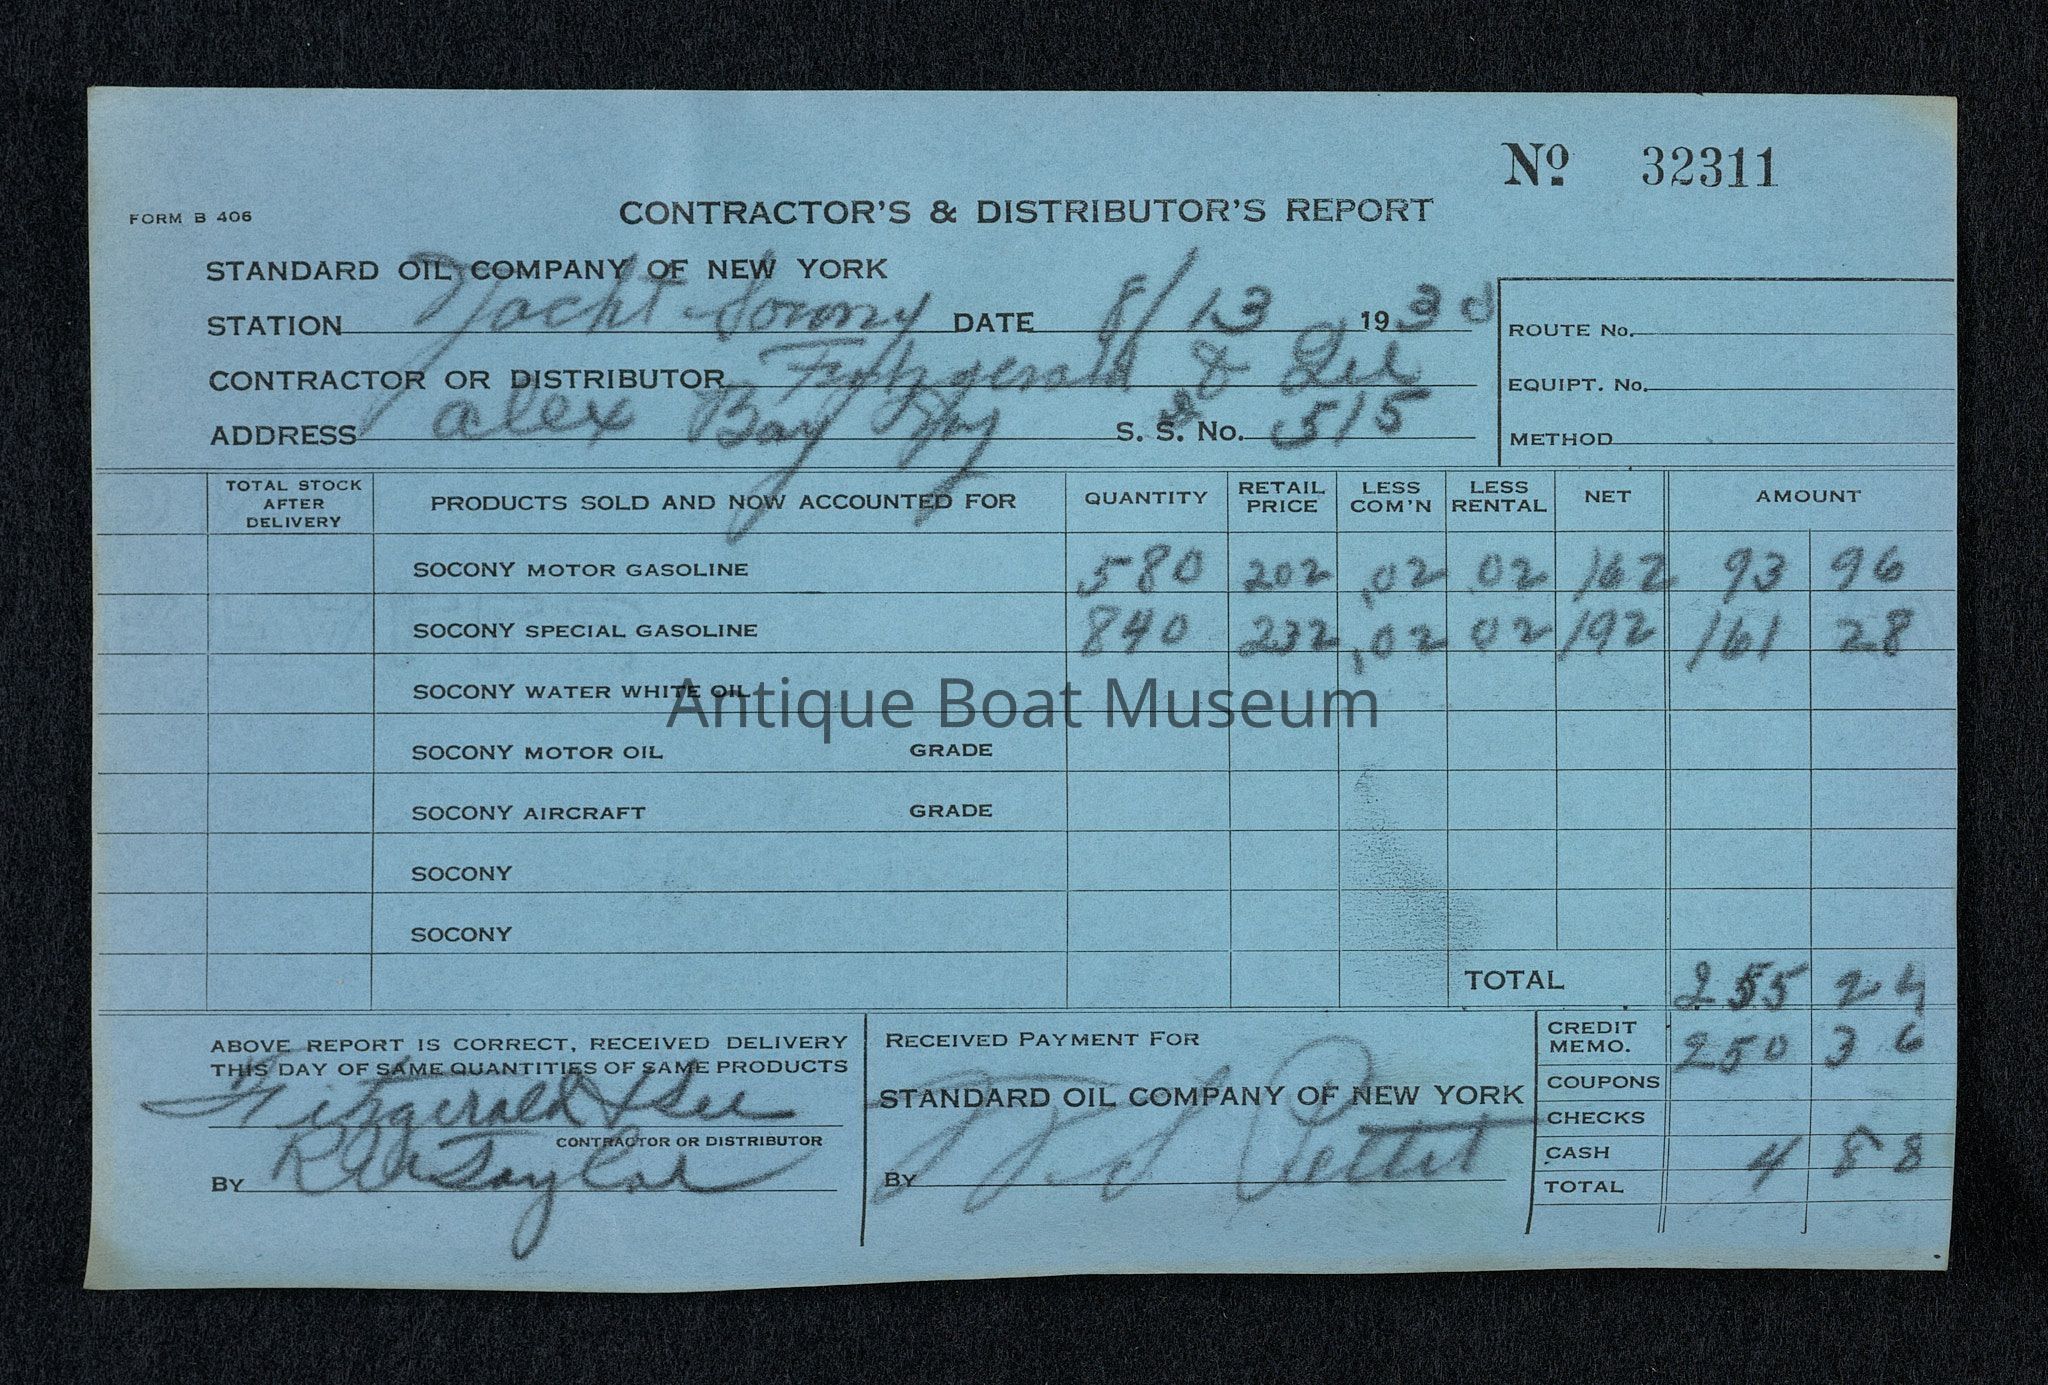 Nº 32311
FORM B 406
CONTRACTOR'S & DISTRIBUTOR'S REPORT
STANDARD OIL COMPANY OF NEW YORK
STATION Yacht Socony DATE 8/13 1930
ROUTE No.
CONTRACTOR OR DISTRIBUTOR Fitzgerald & Lee
EQUIPT. No.
ADDRESS Alex Bay S. S. No. 515
METHOD
TOTAL STOCK AFTER DELIVERY PRODUCTS SOLD AND NOW ACCOUNTED FOR QUANTITY RETAIL PRICE LESS COM'N LESS RENTAL NET AMOUNT
SOCONY MOTOR GASOLINE 580 202 .02 02 162 93 96
SOCONY SPECIAL GASOLINE 840 232 .02 02 192 161 28
SOCONY WATER WHITE OIL
Antique Boat Museum
SOCONY MOTOR OIL GRADE
SOCONY AIRCRAFT GRADE
SOCONY
SOCONY
TOTAL 255 24
ABOVE REPORT IS CORRECT, RECEIVED DELIVERY
THIS DAY OF SAME QUANTITIES OF SAME PRODUCTS
Fitzgerald & Lee
CONTRACTOR OR DISTRIBUTOR
BY Taylor
RECEIVED PAYMENT FOR
STANDARD OIL COMPANY OF NEW YORK
BY Pettit
CREDIT MEMO. 250 36
COUPONS
CHECKS
CASH 4 88
TOTAL